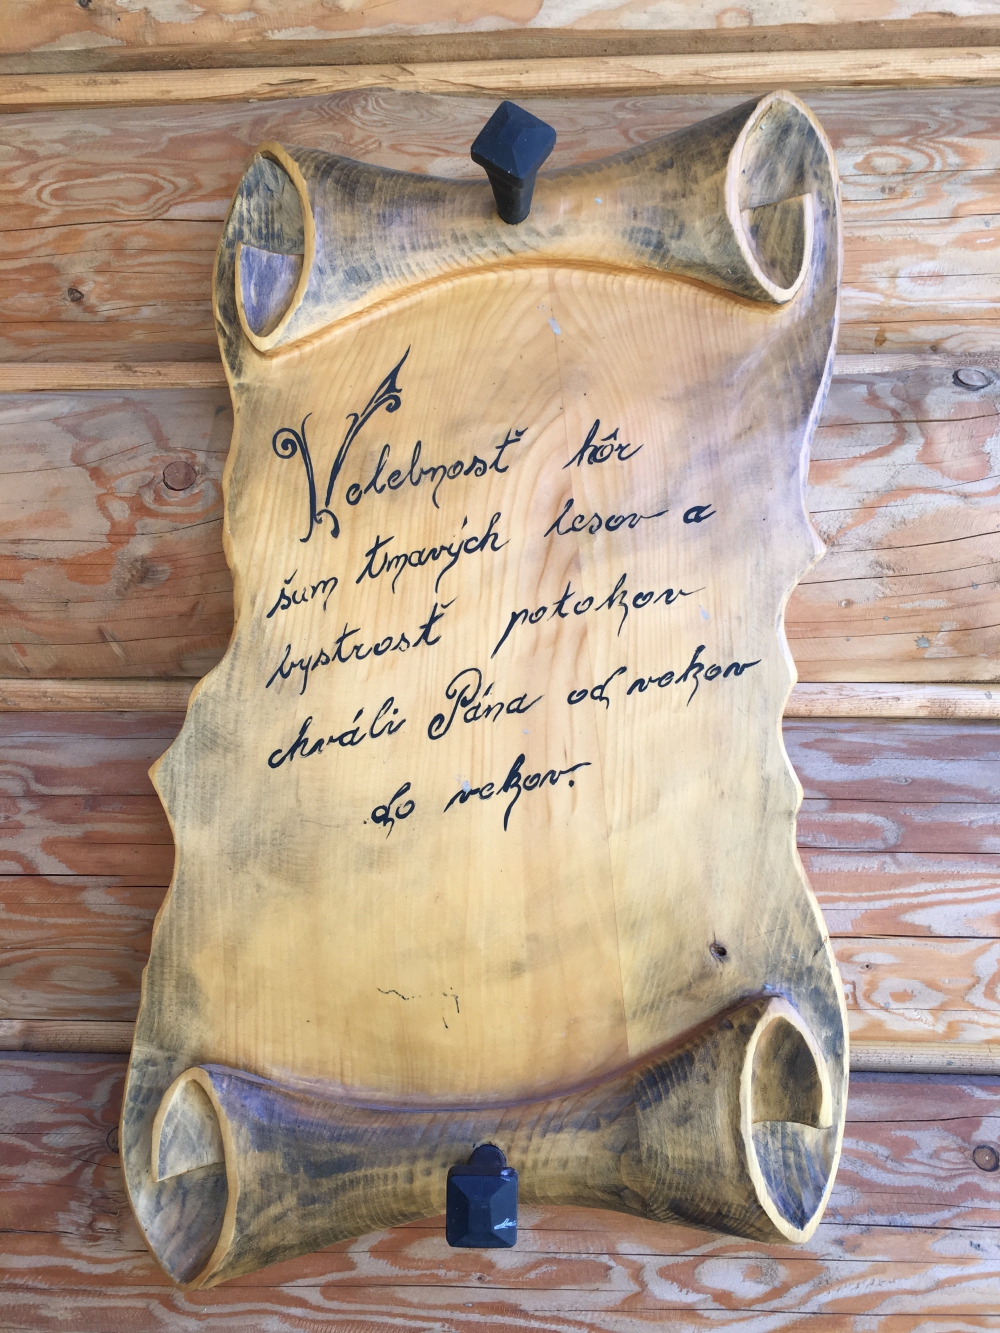 Velebnosť hôr
šum tmavých lesov a
bystrosť potokov
chváli Pána od vekov
do vekov.